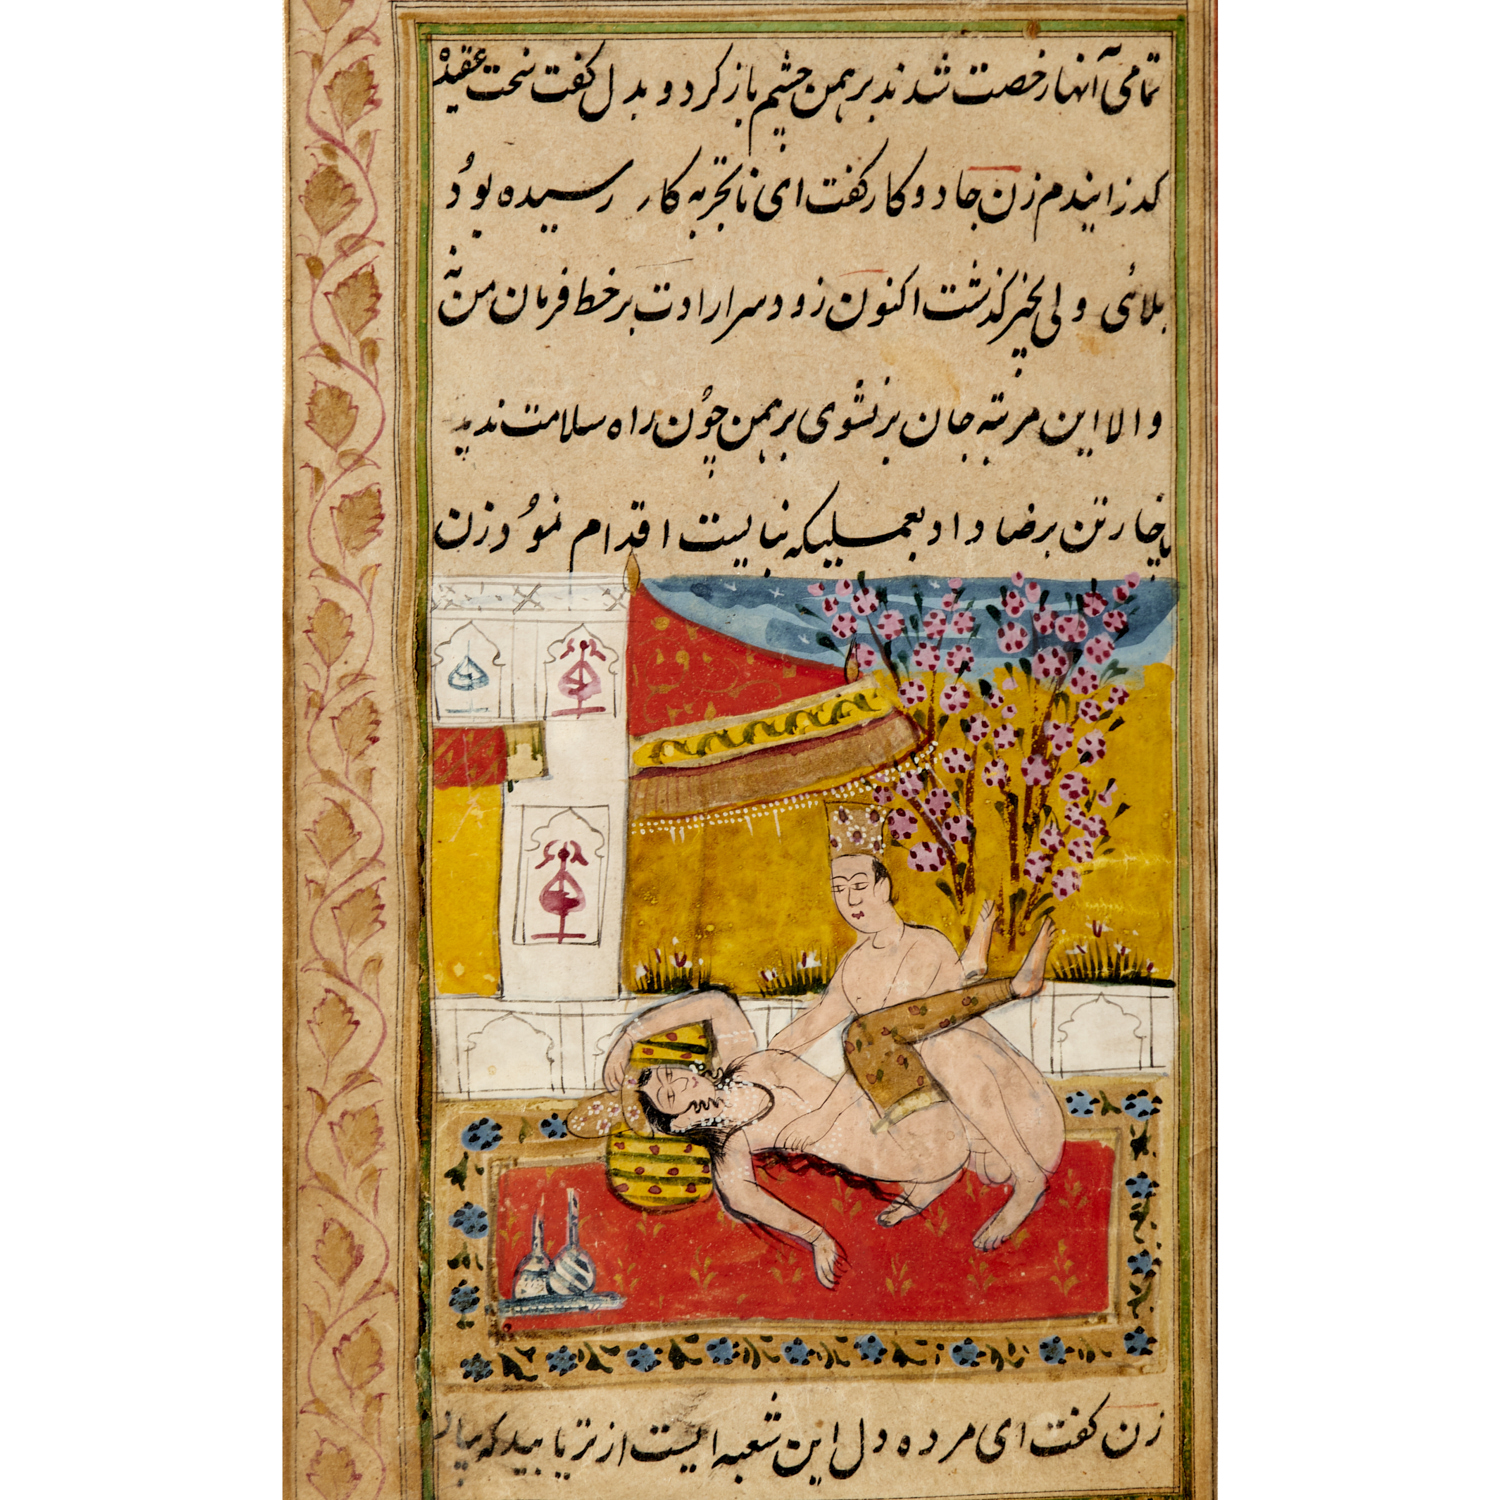 تمامی آنها رخصت شدند برهمن چشم باز کرد و بدل گفت سخت عقیدهٔ
گذرانیدم زن جادوکار گفت ای ناتجربه کار رسیده بود
بلائی ولی بخیر گذشت اکنون زود سر ارادت بر خط فرمان من نه
والا این مرتبه جان بر نشوی برهمن چون راه سلامت ندید
ناچار تن برضا داد بعملیکه نبایست اقدام نمود زن
زن گفت ای مرده دل این شعبه ایست از تریا بید که بیان